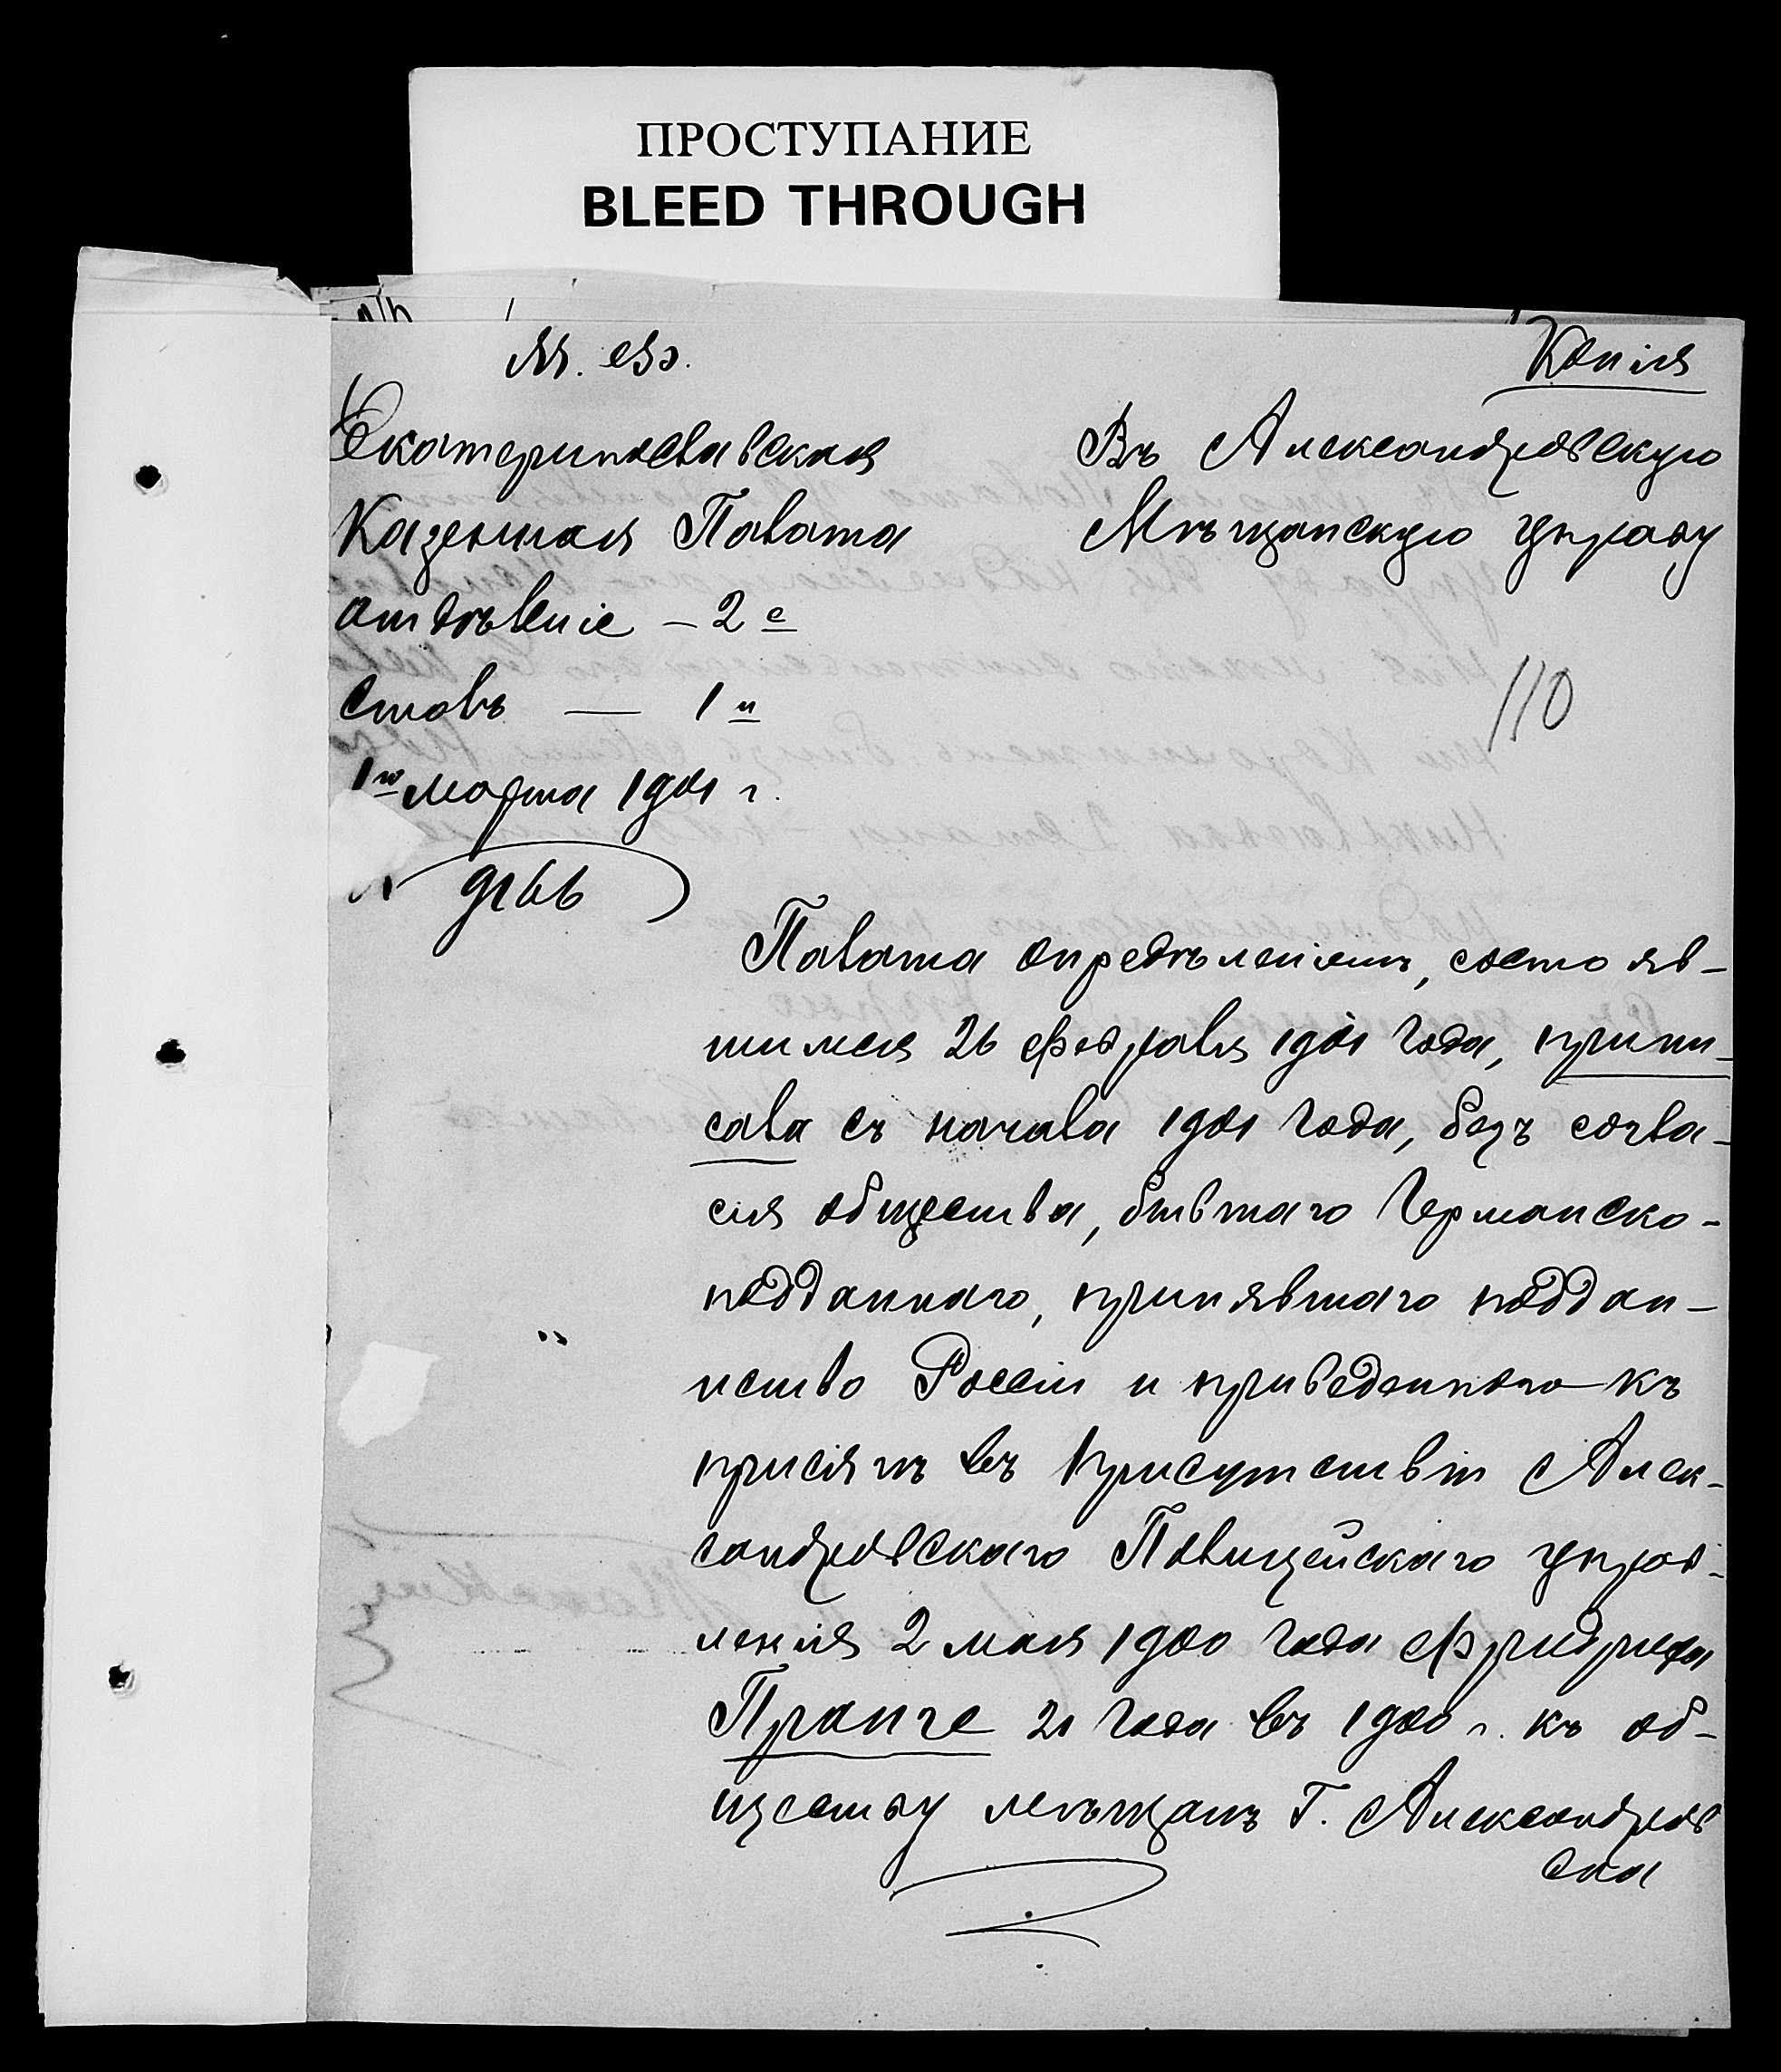 ПРОСТУПАНИЕ
BLEED THROUGH
М. Ф.
Копія
Екатеринославская
Казенная Палата
отдѣленіе – 2 е
столъ — 1 й
1го марта 1901 г.
№ 9166
Въ Александровскую
Мѣщанскую управу
110
Палата опредѣленіемъ, состояв-
шимся 26 февраля 1901 года, припи-
сала съ начала 1901 года, безъ согла-
сія общества, бывшаго Германско-
подданнаго, принявшаго поддан-
нство Россіи и приведеннаго къ
присягѣ въ присутствіи Алек-
сандровскаго Полицейскаго управ-
ленія 2 мая 1900 года Фридриха
Пранге 21 года въ 1900 г. къ об-
ществу мѣщанъ г. Александров
ска